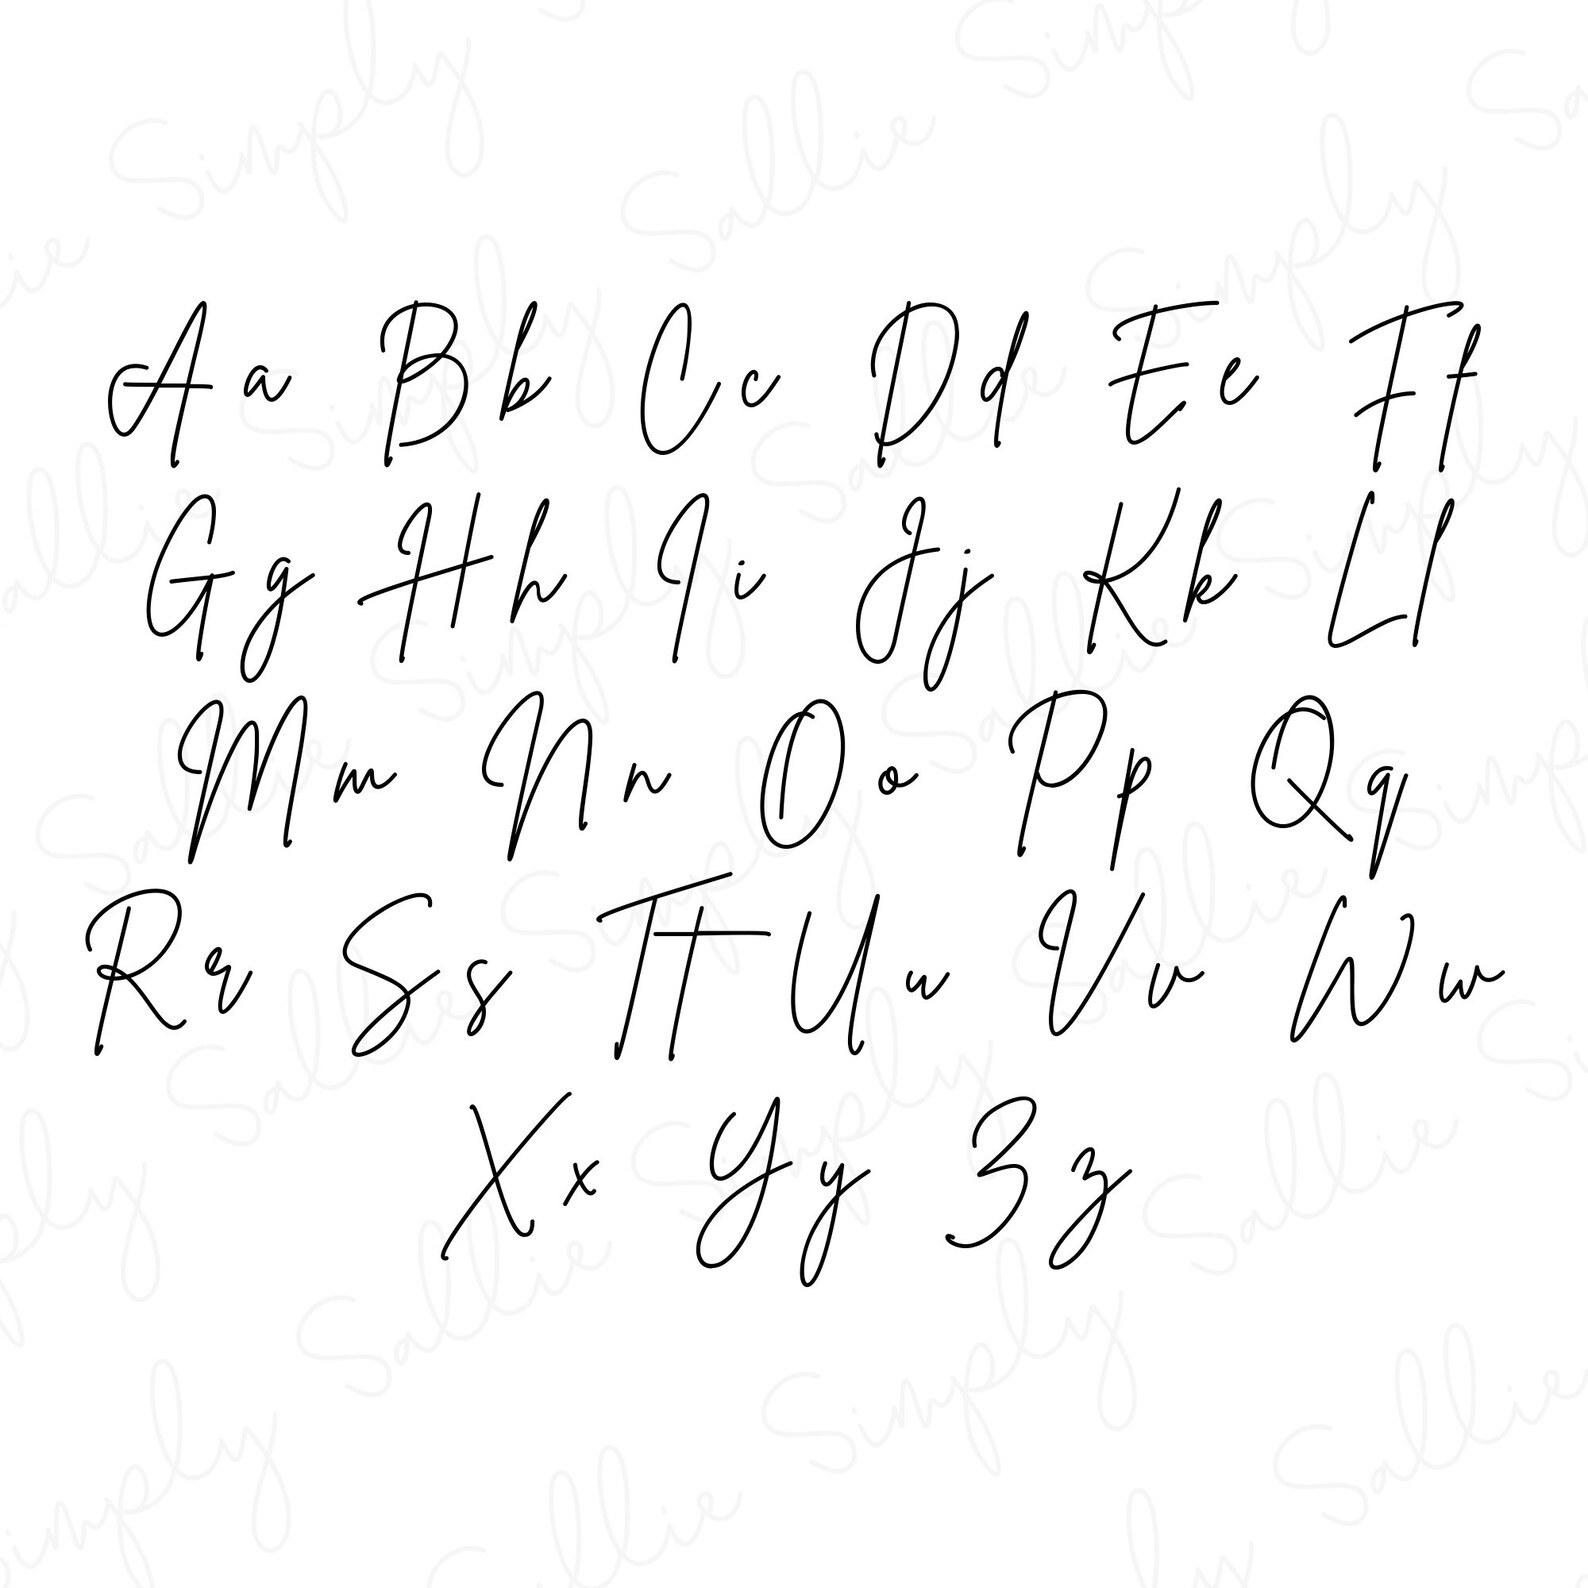 Aa Bb Cc Dd Ee Ff
Gg Hh Ii Jj Kk Ll
Mm Nn Oo Pp Qq
Rr Ss Tt Uu Vv Ww
Xx Yy Zz
Simply Sallie